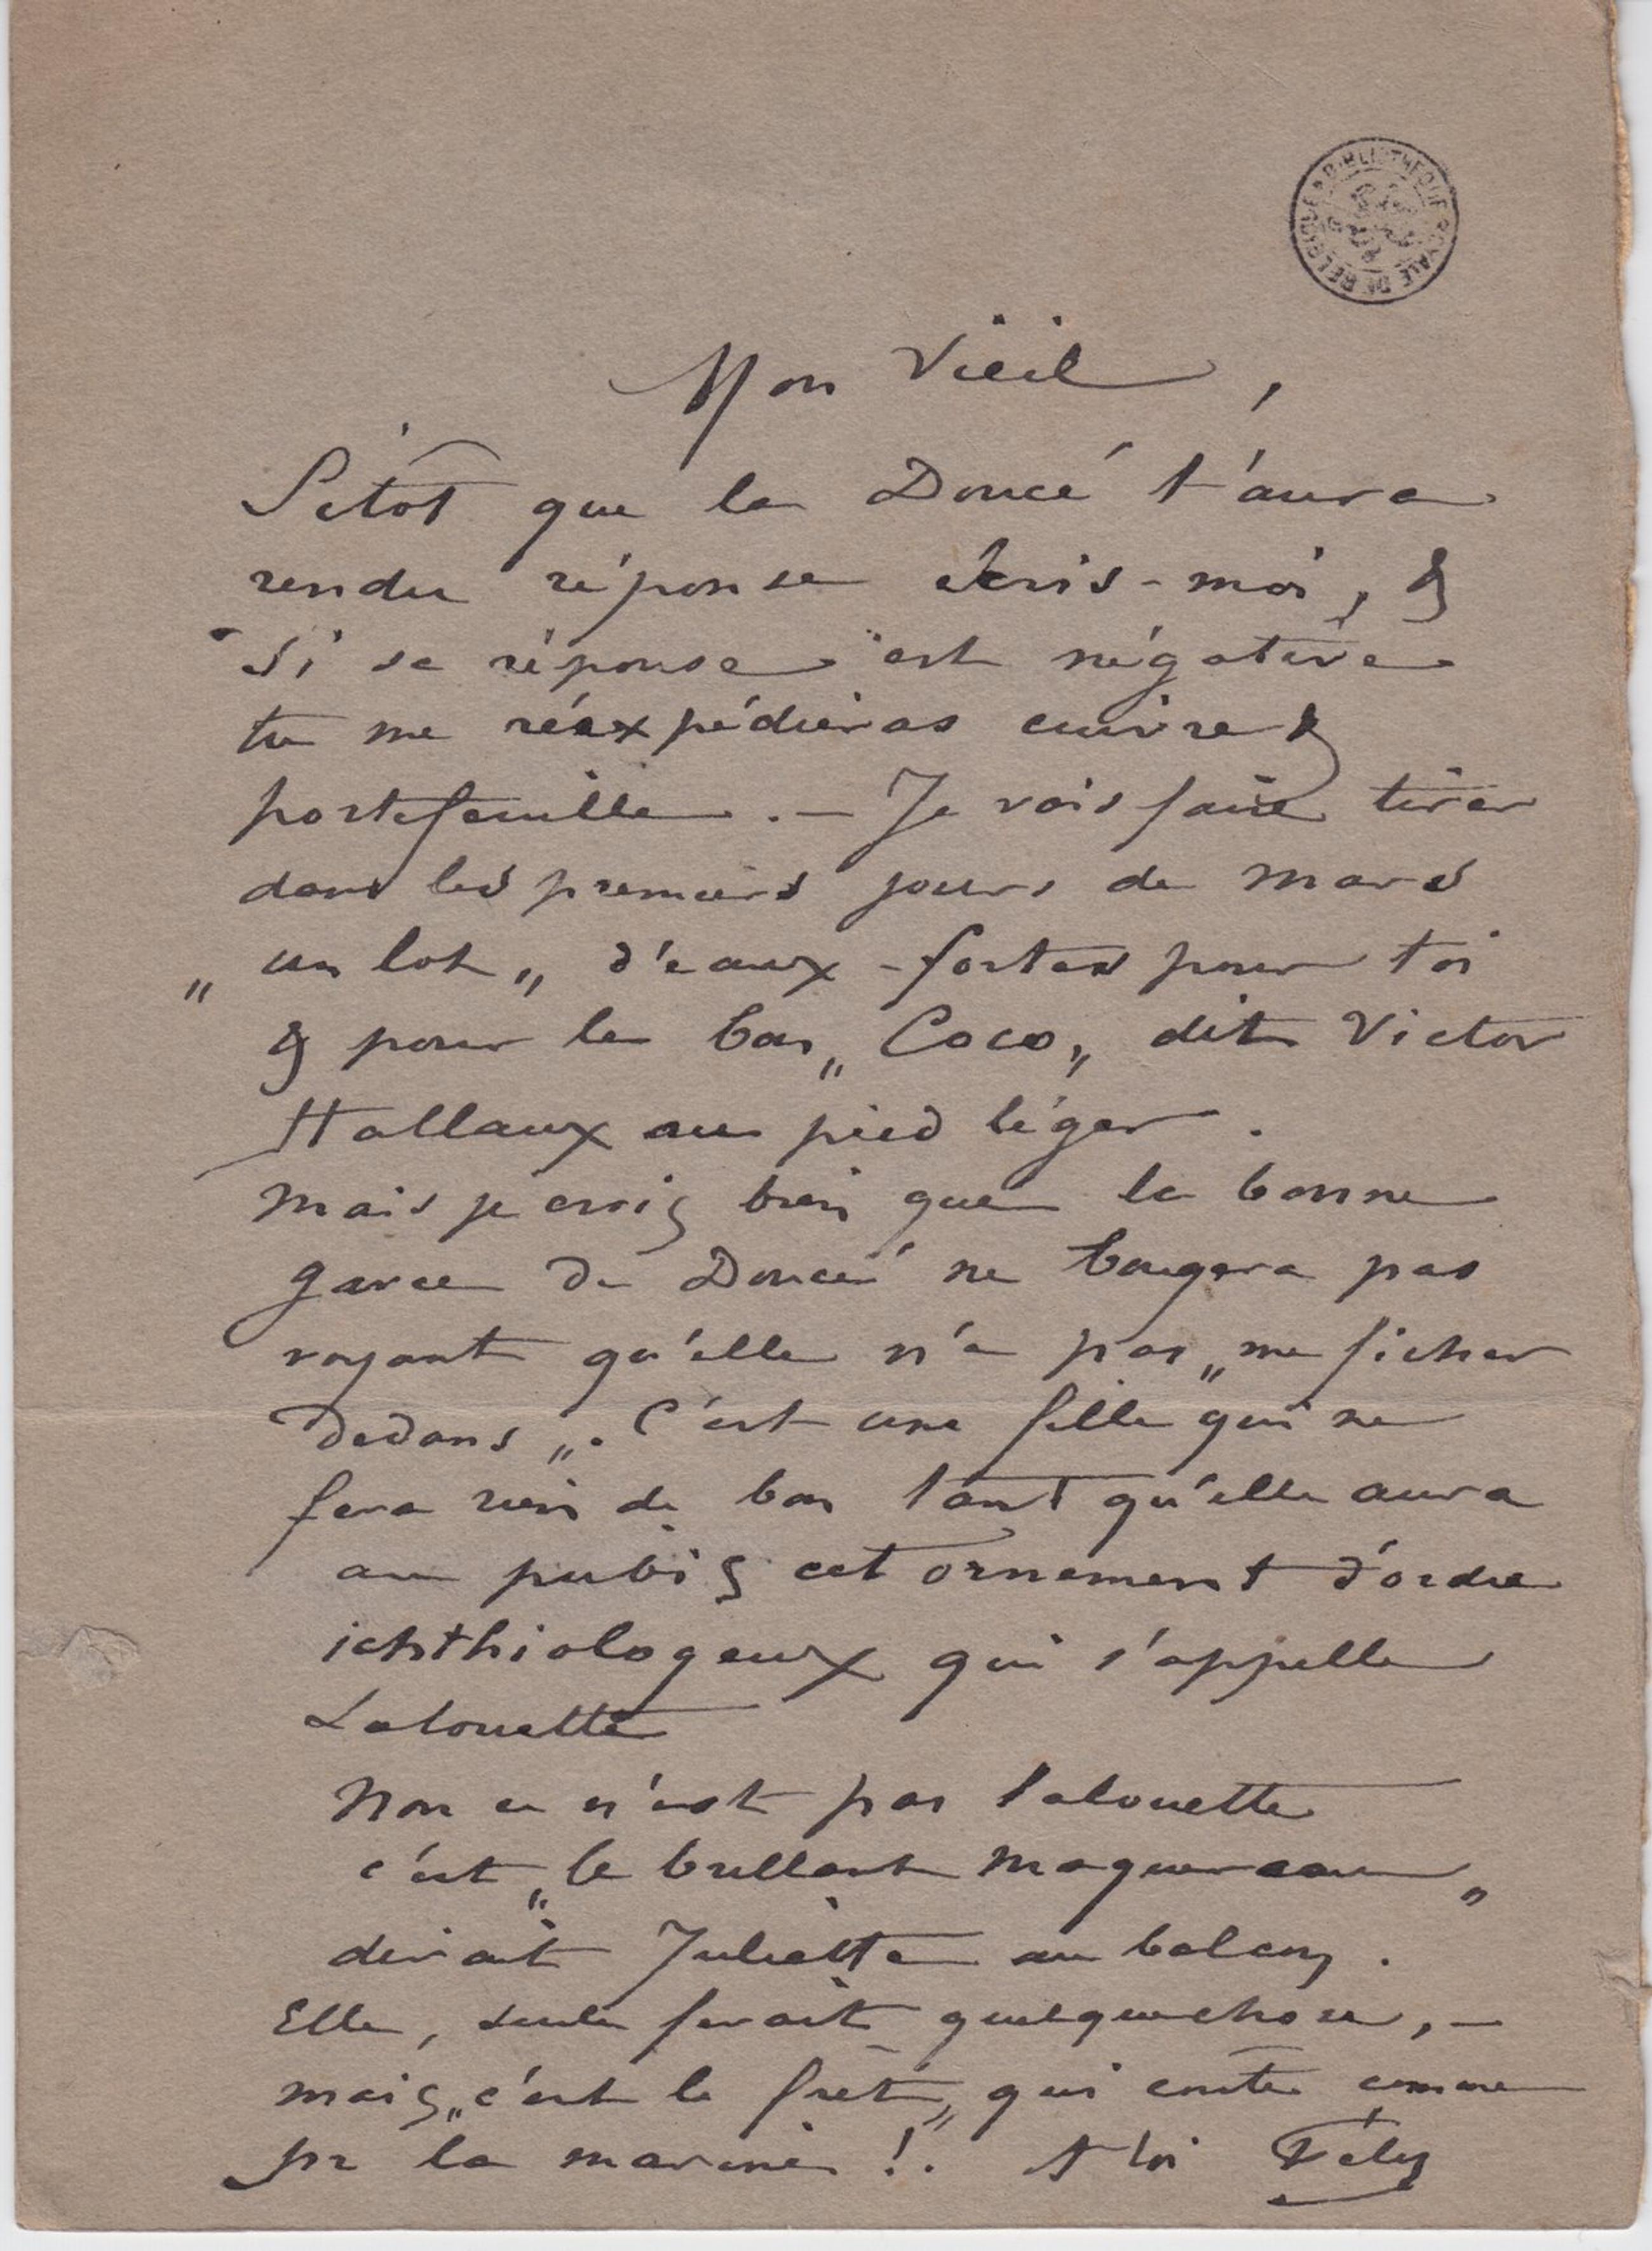 BIBLIOTHEQUE ROYALE DE BELGIQUE
Mon Vieil,
Sitôt que la Doucé t'aura
rendu réponse écris-moi, &
si sa réponse est négative
tu me réexpédieras cuivre &
portefeuille. — Je vais faire tirer
dans les premiers jours de Mars
„un lot„ d'eaux-fortes pour toi
& pour le bon „Coco„ dit Victor
Hallaux au pied léger.
Mais je crois bien que la bonne
garce de Doucé ne bougera pas
voyant qu'elle n'a pas „me ficher
dedans„. C'est une fille qui ne
fera rien de bon tant qu'elle aura
au pubis cet ornement d'ordre
ichthiologeux qui s'appelle
Lalouette
Non ce n'est pas l'alouette
c'est „le brillant maquereau„
dirait Juliette au balcon.
Elle, seule ferait quelquechose, —
mais „c'est le frèt„ qui coute comme
pr la marine !. A toi Fély